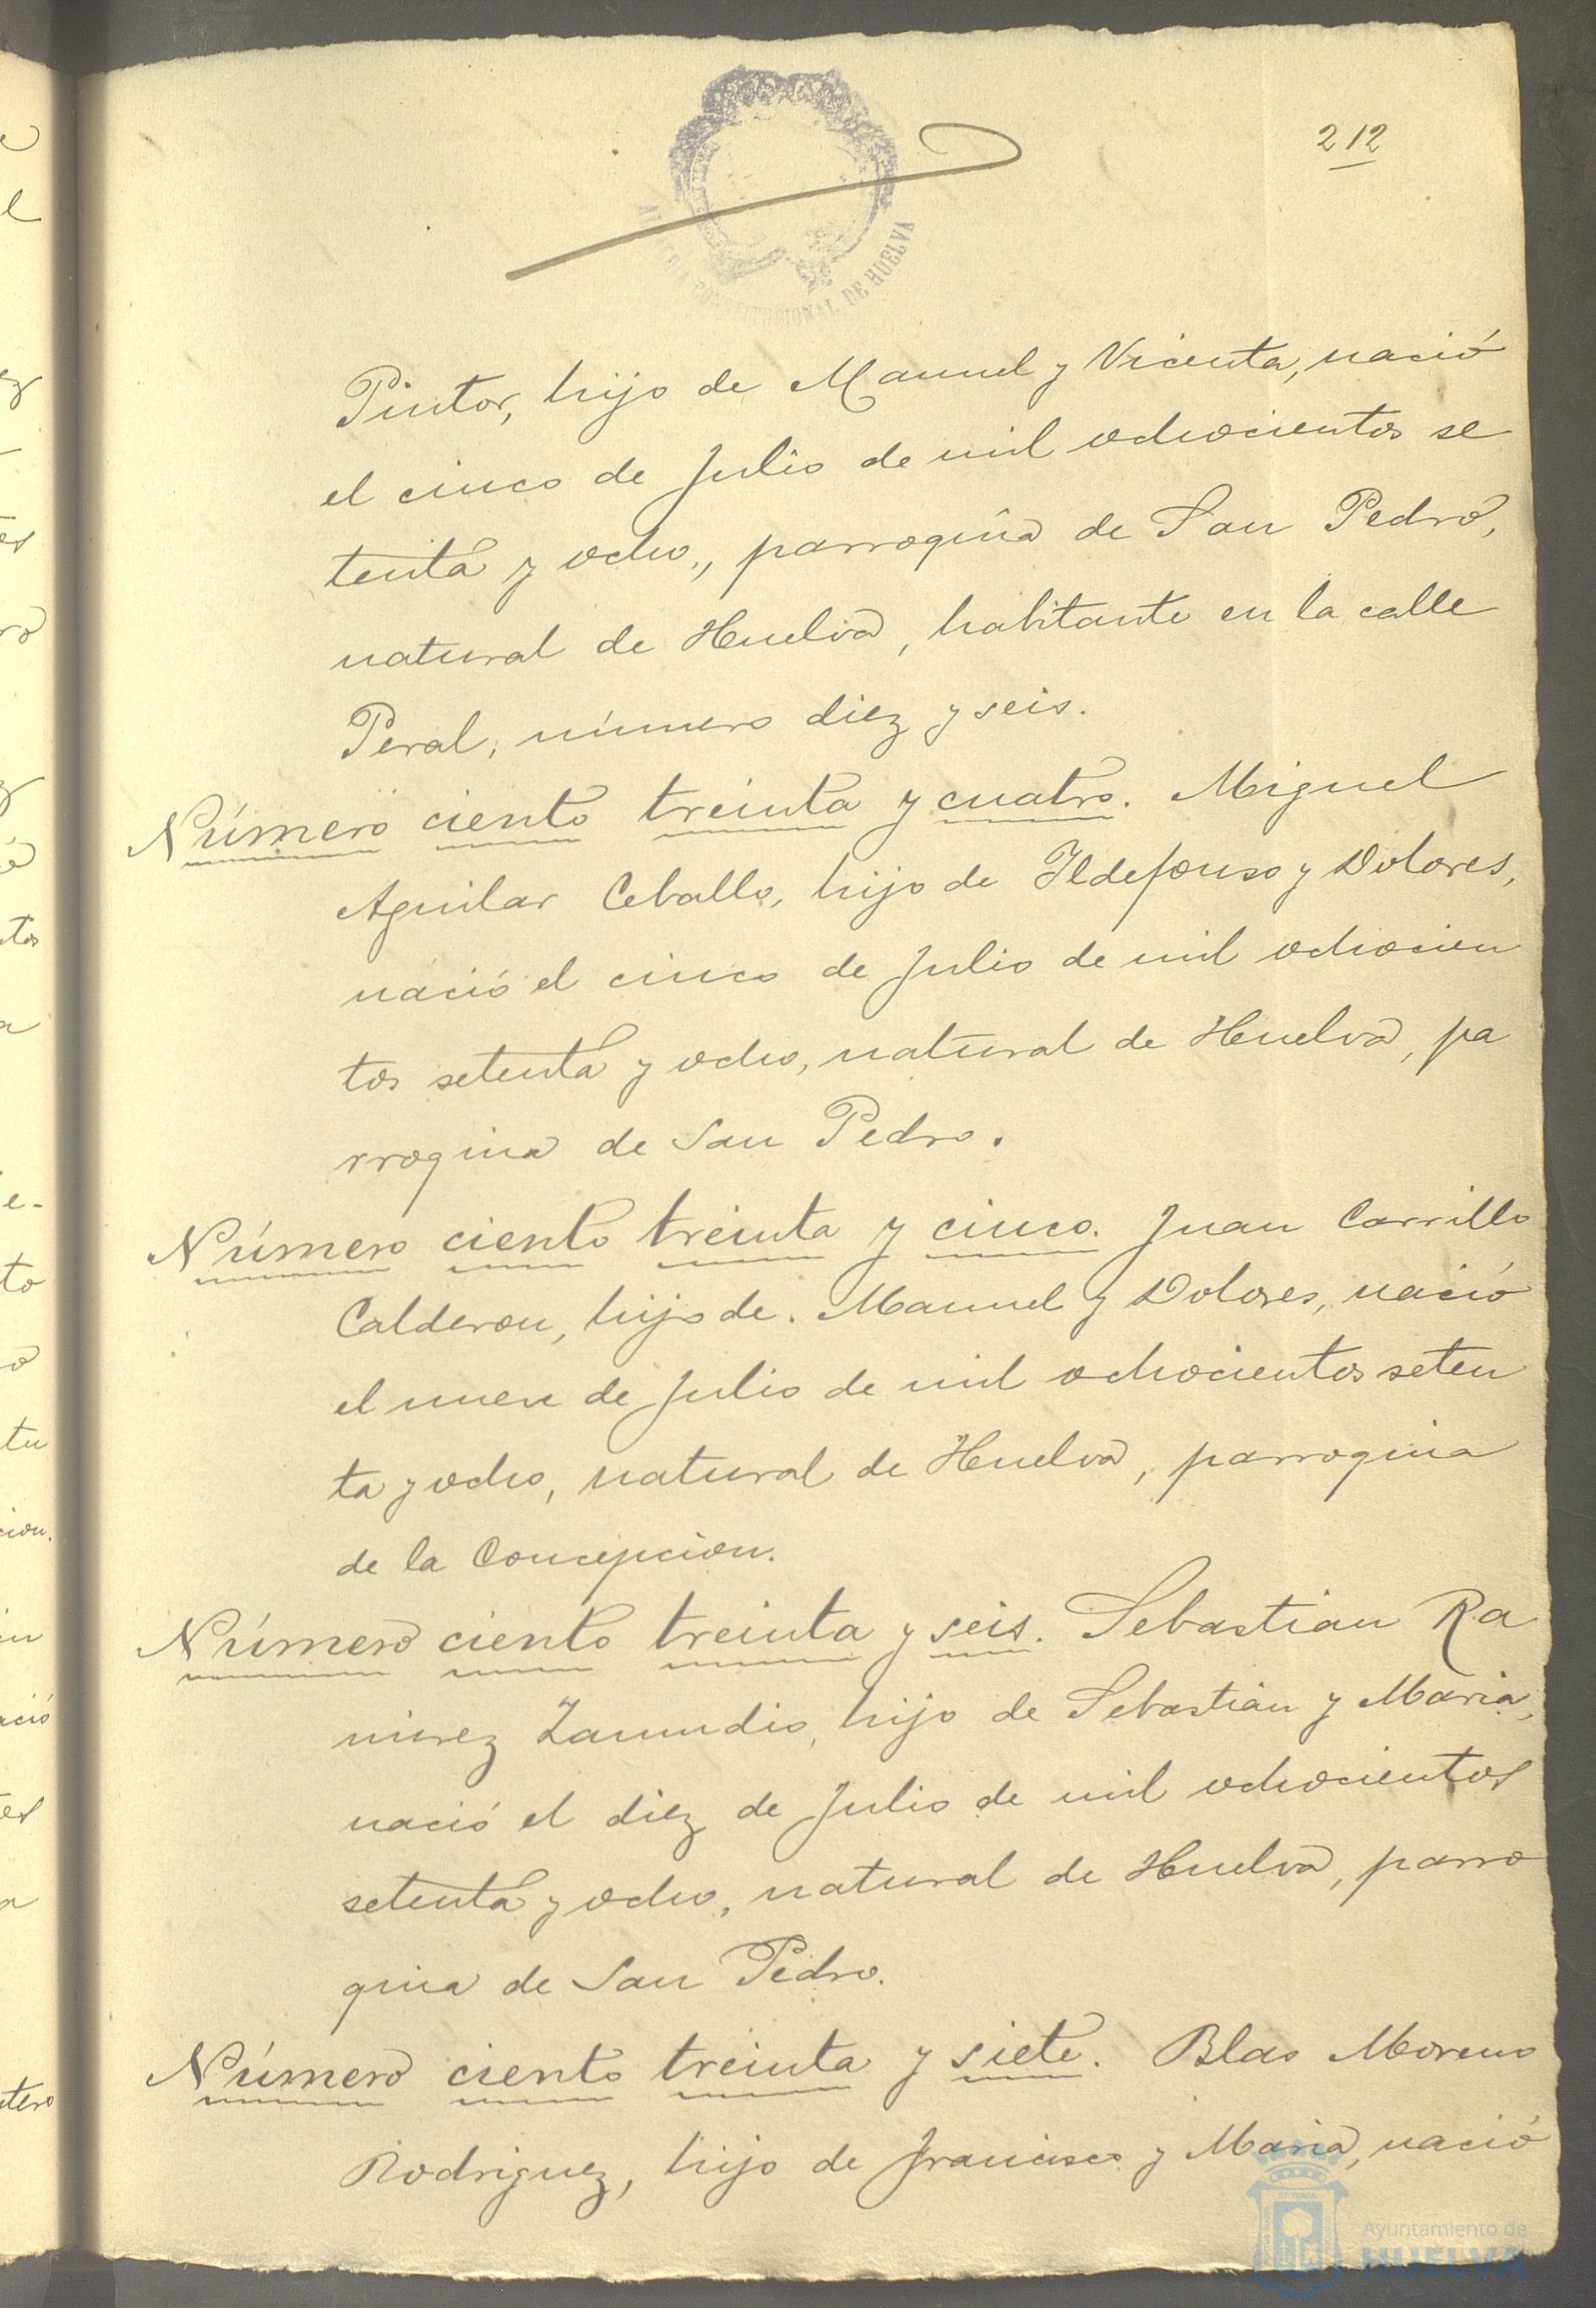 212
CONSTITUCIONAL DE HUELVA
Pintor, hijo de Manuel y Vicenta, nació
el cinco de Julio de mil ochocientos se
tenta y ocho, parroquia de San Pedro,
natural de Huelva, habitante en la calle
Peral, número diez y seis.
Número ciento treinta y cuatro. Miguel
Aguilar Ceballo, hijo de Ildefonso y Dolores,
nació el cinco de Julio de mil ochocien
tos setenta y ocho, natural de Huelva, pa
rroquia de San Pedro.
Número ciento treinta y cinco. Juan Carrillo
Calderon, hijo de. Manuel y Dolores, nació
el nueve de Julio de mil ochocientos seten
ta y ocho, natural de Huelva, parroquia
de la Concepcion.
Número ciento treinta y seis. Sebastian Ra
mirez Zamudio, hijo de Sebastián y Maria,
nació el diez de Julio de mil ochocientos
setenta y ocho, natural de Huelva, parro
quia de San Pedro.
Número ciento treinta y siete. Blas Moreno
Rodriguez, hijo de Francisco y Maria, nació
Ayuntamiento de
HUELVA